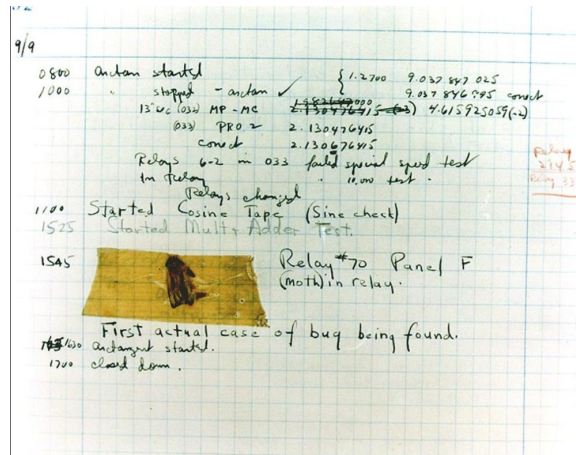 9/9
0800 antan started
1000 " stopped - antan ✓ { 1.2700 9.037 847 025
9.037 846 995 conect
13"uc (032) MP-MC 2.130476415 (-3) 4.615925059(-2)
(033) PRO 2 2.130476415
conect 2.130676415
Relays 6-2 in 033 failed special speed test
in Relay " 10,000 test .
Relay
2145
Relay 33
Relays changed
1100 Started Cosine Tape (Sine check)
1525 Started Mult + Adder Test.
1545 Relay #70 Panel F
(moth) in relay.
First actual case of bug being found.
1630 antangent started.
1700 closed down.